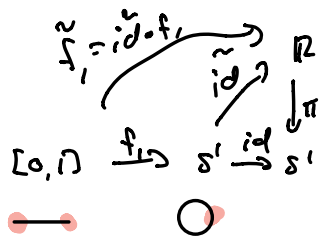 f̃₁ = ĩd∘f₁
ĩd
ℝ
π
[0,1] f₁ S¹ id S¹